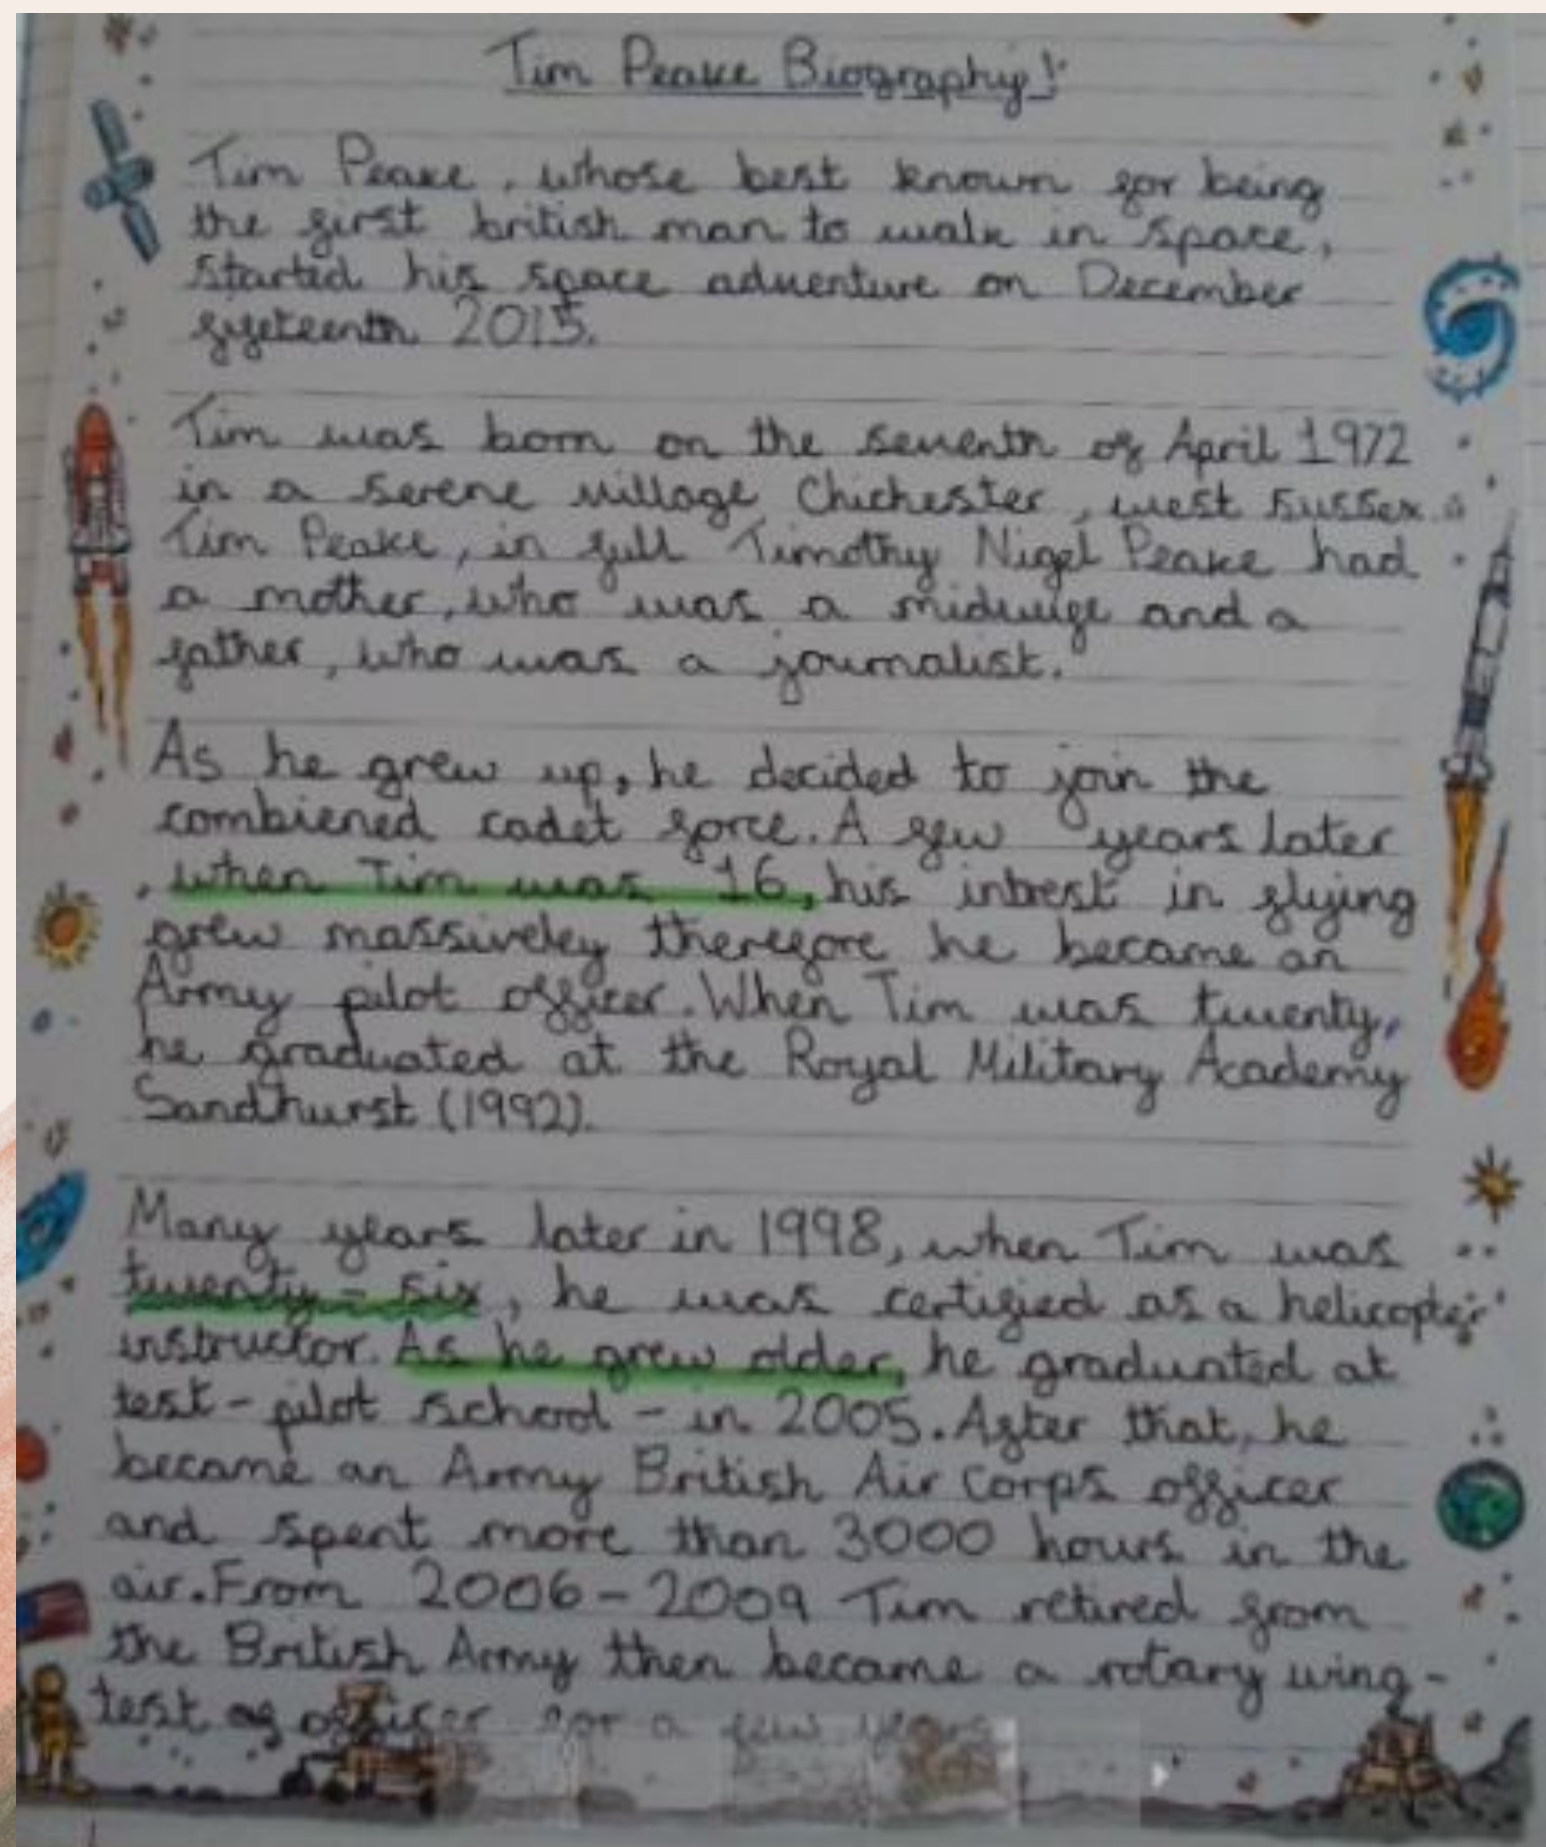 Tim Peake Biography!
Tim Peake, whose best known for being
the first british man to walk in space,
started his space adventure on December
fifeteenth 2015.
Tim was born on the seventh of April 1972
in a serene village Chichester, west sussex.
Tim Peake, in full Timothy Nigel Peake had
a mother, who was a midwife and a
father, who was a journalist.
As he grew up, he decided to join the
combiened cadet force. A few years later
, when Tim was 16, his intrest in flying
grew massiveley therefore he became an
Army pilot officer. When Tim was twenty,
he graduated at the Royal Military Academy
Sandhurst (1992).
Many years later in 1998, when Tim was
twenty-six, he was certified as a helicopter
instructor. As he grew older, he graduated at
test-pilot school - in 2005. After that, he
became an Army British Air Corps officer
and spent more than 3000 hours in the
air. From 2006-2009 Tim retired from
the British Army then became a rotary wing-
test officer for a few years